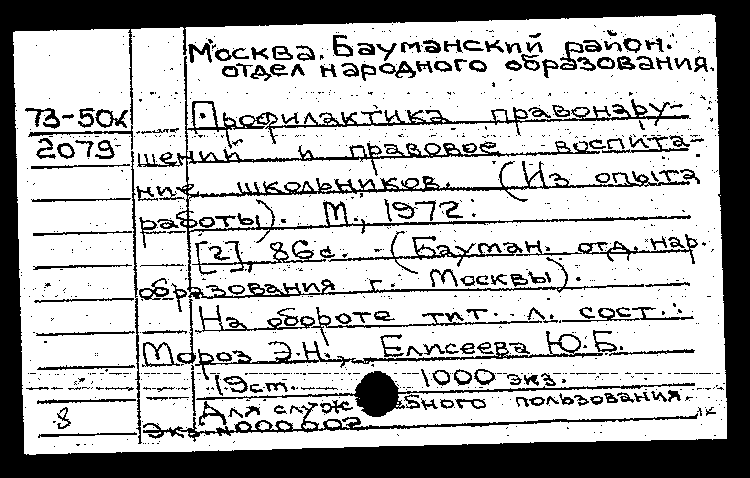 Москва. Бауманский район.
отдел народного образования.
73-50к
2079
Профилактика правонару-
шений и правовое воспита-
ние школьников. (Из опыта
работы). М., 1972.
[2], 86с. - (Бауман. отд. нар.
образования г. Москвы).
На обороте тит. л. сост.:
Мороз Э.Н., Елисеева Ю.Б.
19ст. 1000 экз.
Для служебного пользования.
8
Экз. N000002